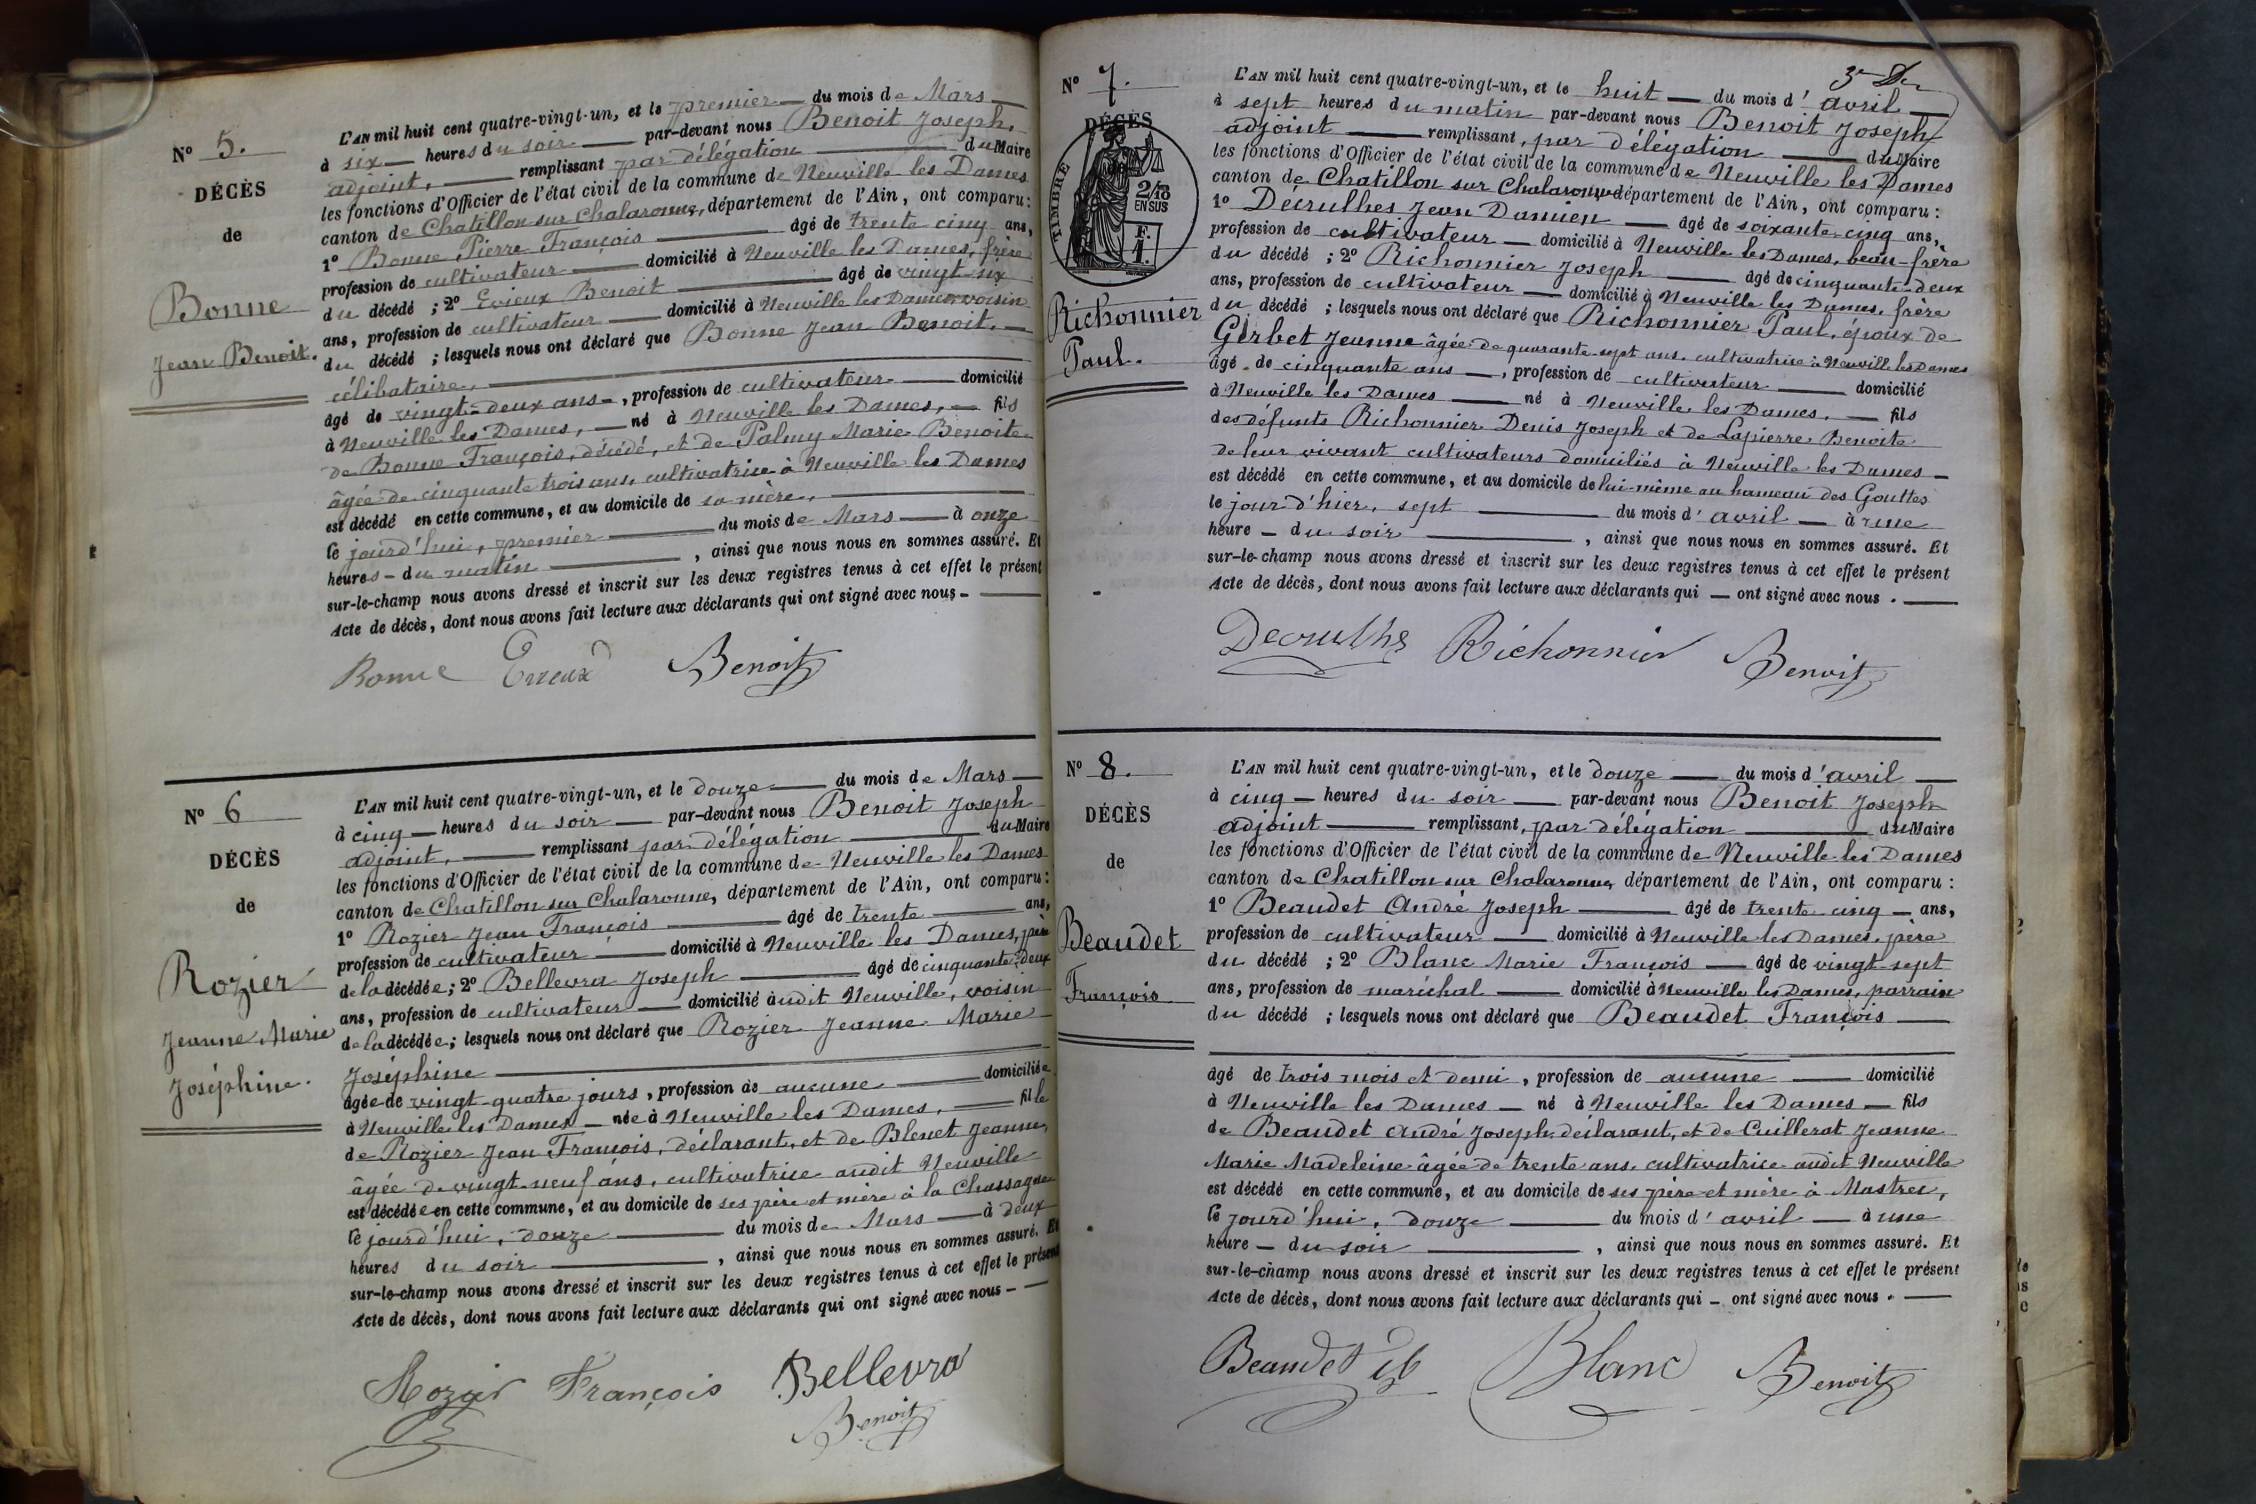 N° 5.
DÉCÈS
de
Bonne
Jean Benoit.
L'AN mil huit cent quatre-vingt-un, et le premier — du mois de Mars —
à six — heures du soir — par-devant nous Benoit Joseph,
adjoint, — remplissant par délégation — du Maire
les fonctions d'Officier de l'état civil de la commune de Neuville les Dames
canton de Chatillon sur Chalaronne, département de l'Ain, ont comparu :
1° Bonne Pierre François — âgé de trente cinq ans,
profession de cultivateur — domicilié à Neuville les Dames, frère
du décédé ; 2° Evieux Benoit — âgé de vingt-six
ans, profession de cultivateur — domicilié à Neuville les Dames, voisin
du décédé ; lesquels nous ont déclaré que Bonne Jean Benoit, —
célibataire, —
âgé de vingt-deux ans —, profession de cultivateur — domicilié
à Neuville les Dames, — né à Neuville les Dames, — fils
de Bonne François, décédé, et de Palmy Marie Benoite
âgée de cinquante trois ans, cultivatrice à Neuville les Dames
est décédé en cette commune, et au domicile de sa mère, —
le jourd'hui, premier — du mois de Mars — à onze
heures — du matin — , ainsi que nous nous en sommes assuré. Et
sur-le-champ nous avons dressé et inscrit sur les deux registres tenus à cet effet le présent
Acte de décès, dont nous avons fait lecture aux déclarants qui ont signé avec nous - —
Bonne Evieux Benoit
N° 6
DÉCÈS
de
Rozier
Jeanne Marie
Joséphine.
L'AN mil huit cent quatre-vingt-un, et le douze — du mois de Mars —
à cinq — heures du soir — par-devant nous Benoit Joseph
adjoint, — remplissant par délégation — du Maire
les fonctions d'Officier de l'état civil de la commune de Neuville les Dames
canton de Chatillon sur Chalaronne, département de l'Ain, ont comparu :
1° Rozier Jean François — âgé de trente — ans,
profession de cultivateur — domicilié à Neuville les Dames, père
de la décédée ; 2° Bellevra Joseph — âgé de cinquante-deux
ans, profession de cultivateur — domicilié audit Neuville, voisin
de la décédée ; lesquels nous ont déclaré que Rozier Jeanne Marie
Joséphine —
âgée de vingt-quatre jours, profession de aucune — domiciliée
à Neuville les Dames — née à Neuville les Dames, — fille
de Rozier Jean François, déclarant, et de Blenet Jeanne,
âgée de vingt-neuf ans, cultivatrice audit Neuville
est décédée en cette commune, et au domicile de ses père et mère à la Chassagne
le jourd'hui, douze — du mois de Mars — à deux
heures du soir — , ainsi que nous nous en sommes assuré. Et
sur-le-champ nous avons dressé et inscrit sur les deux registres tenus à cet effet le présent
Acte de décès, dont nous avons fait lecture aux déclarants qui ont signé avec nous - —
Rozier François Bellevra
Benoit
N° 7.
DÉCÈS
TIMBRE
2/10
EN SUS
F.
1.
Richonnier
Paul.
L'AN mil huit cent quatre-vingt-un, et le huit — du mois d'avril —
à sept heures du matin par-devant nous Benoit Joseph
adjoint — remplissant, par délégation — du Maire
les fonctions d'Officier de l'état civil de la commune de Neuville les Dames
canton de Chatillon sur Chalaronne, département de l'Ain, ont comparu :
1° Décrulhes Jean Damien — âgé de soixante-cinq ans,
profession de cultivateur — domicilié à Neuville les Dames, beau-frère
du décédé ; 2° Richonnier Joseph — âgé de cinquante-deux
ans, profession de cultivateur — domicilié à Neuville les Dames, frère
du décédé ; lesquels nous ont déclaré que Richonnier Paul, époux de
Gerbet Jeanne âgée de quarante-sept ans, cultivatrice à Neuville les Dames
âgé de cinquante ans —, profession de cultivateur — domicilié
à Neuville les Dames — né à Neuville les Dames. — fils
des défunts Richonnier Denis Joseph et de Lapierre Benoite
de leur vivant cultivateurs domiciliés à Neuville les Dames —
est décédé en cette commune, et au domicile de lui-même au hameau des Gouttes
le jour d'hier, sept — du mois d'avril — à une
heure — du soir — , ainsi que nous nous en sommes assuré. Et
sur-le-champ nous avons dressé et inscrit sur les deux registres tenus à cet effet le présent
Acte de décès, dont nous avons fait lecture aux déclarants qui — ont signé avec nous . —
Decrulhs Richonnier Benoit
N° 8.
DÉCÈS
de
Beaudet
François
L'AN mil huit cent quatre-vingt-un, et le douze — du mois d'avril —
à cinq — heures du soir — par-devant nous Benoit Joseph
adjoint — remplissant, par délégation — du Maire
les fonctions d'Officier de l'état civil de la commune de Neuville les Dames
canton de Chatillon sur Chalaronne, département de l'Ain, ont comparu :
1° Beaudet André Joseph — âgé de trente cinq — ans,
profession de cultivateur — domicilié à Neuville les Dames, père
du décédé ; 2° Blanc Marie François — âgé de vingt-sept
ans, profession de maréchal — domicilié à Neuville les Dames, parrain
du décédé ; lesquels nous ont déclaré que Beaudet François —
âgé de trois mois et demi, profession de aucune — domicilié
à Neuville les Dames — né à Neuville les Dames — fils
de Beaudet André Joseph, déclarant, et de Cuillerat Jeanne
Marie Madeleine âgée de trente ans, cultivatrice audit Neuville
est décédé en cette commune, et au domicile de ses père et mère à Mastres,
le jourd'hui, douze — du mois d'avril — à une
heure — du soir — , ainsi que nous nous en sommes assuré. Et
sur-le-champ nous avons dressé et inscrit sur les deux registres tenus à cet effet le présent
Acte de décès, dont nous avons fait lecture aux déclarants qui — ont signé avec nous . —
Beaudet Blanc Benoit